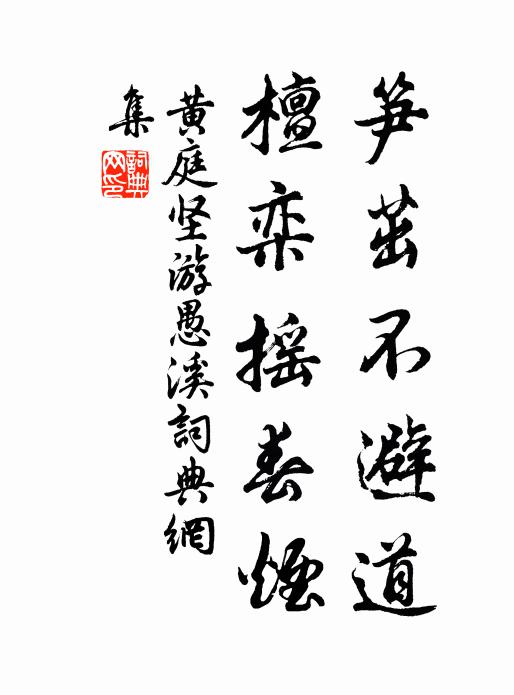 笋茁不避道
檀栾摇春煙
黄庭坚游愚溪詞典網
集
詞典网印